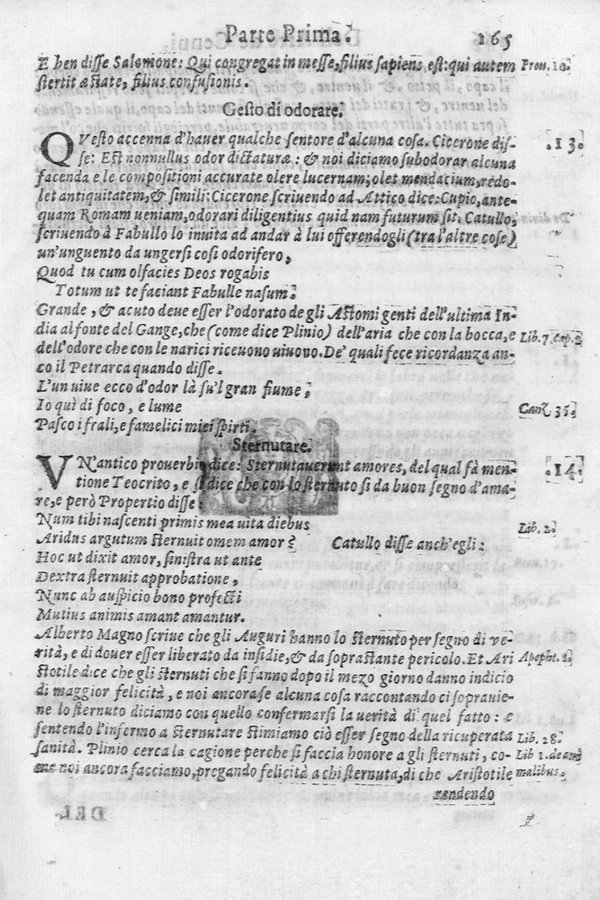 Parte Prima. 265
E ben disse Salomone: Qui congregat in messe, filius sapiens est: qui autem Prou. 10.
stertit æstate, filius confusionis.
Gesto di odorare.
QVesto accenna d'hauer qualche sentore d'alcuna cosa. Cicerone dis- .13.
se: Est nonnullus odor dictaturæ: & noi diciamo subodorar alcuna
facenda e le compositioni accurate olere lucernam; olet mendacium, redo-
let antiquitatem, & simili: Cicerone scriuendo ad Attico dice: Cupio, ante-
quam Romam ueniam, odorari diligentius quid nam futurum sit. Catullo,
scriuendo à Fabullo lo inuita ad andar à lui offerendogli (tra l'altre cose)
un'unguento da ungersi cosi odorifero,
Quod tu cum olfacies Deos rogabis
Totum ut te faciant Fabulle nasum.
Grande, & acuto deue esser l'odorato de gli Astomi genti dell'ultima In-
dia al fonte del Gange, che (come dice Plinio) dell'aria che con la bocca, e Lib. 7. Cap. 2
dell'odore che con le narici riceuono uiuono. De' quali fece ricordanza an-
co il Petrarca quando disse.
L'un uiue ecco d'odor là su'l gran fiume,
Io quì di foco, e lume Canz. 35.
Pasco i frali, e famelici miei spirti.
Sternutare.
VN'antico prouerbio dice: Sternutauerunt amores, del qual fà men- .14.
tione Teocrito, e si dice che con lo sternuto si da buon segno d'ama-
re, e però Propertio disse
Num tibi nascenti primis mea uita diebus Lib. 2.
Aridus argutum sternuit omem amor? Catullo disse anch'egli:
Hoc ut dixit amor, sinistra ut ante
Dextra sternuit approbatione,
Nunc ab auspicio bono profecti
Mutius animis amant amantur.
Alberto Magno scriue che gli Auguri hanno lo sternuto per segno di ue-
rità, e di douer esser liberato da insidie, & da soprastante pericolo. Et Ari Apopht. 2.
stotile dice che gli sternuti che si fanno dopo il mezo giorno danno indicio
di maggior felicità, e noi ancora se alcuna cosa raccontando ci soprauie-
ne lo sternuto diciamo con quello confermarsi la uerità di quel fatto: e
sentendo l'infermo a sternutare stimiamo ciò esser segno della ricuperata Lib. 28.
sanità. Plinio cerca la cagione perche si faccia honore a gli sternuti, co- Lib 1. de ani
me noi ancora facciamo, pregando felicità a chi sternuta, di che Aristotile malibus.
rendendo